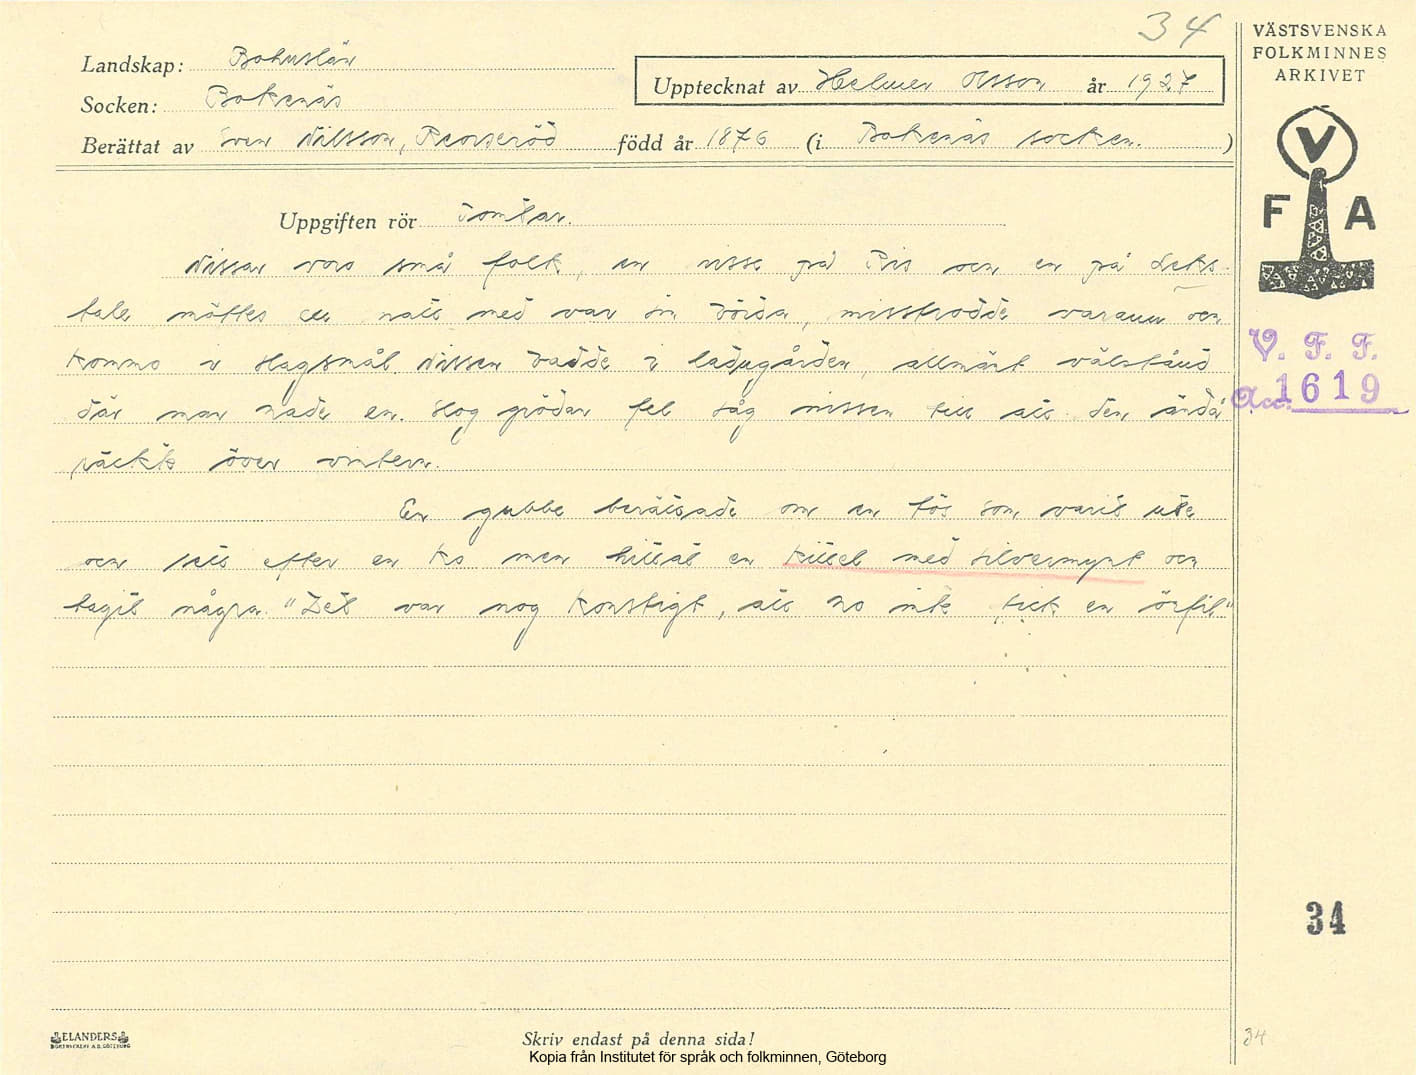 34
VÄSTSVENSKA
FOLKMINNES
ARKIVET
Landskap: Bohuslän
Upptecknat av Helmer Olsson år 1927
Socken: Bokenäs
Berättat av Sven Nilsson, Reorseröd född år 1876 (i Bokenäs socken.)
V
F A
Uppgiften rör Tomtar.
Nissar voro små folk, en nisse på Ris och en på Leks-
tale möttes en natt med var sin börda, misstrodde varann och
kommo i slagsmål. Nissen bodde i ladugården, allmänt välstånd
där man hade en. Slog grödan fel såg nissen till att den ändå
räckte över vintern.
En gubbe berättade om en tös som varit ute
och sett efter en ko men hittat en kittel med silvermynt och
tagit några. "Det var nog konstigt, att ho inte fick en örfil"
V. F. F.
Acc. 1619
34
ELANDERS
BOKTRYCKERI A.B. GÖTEBORG
Skriv endast på denna sida!
34
Kopia från Institutet för språk och folkminnen, Göteborg